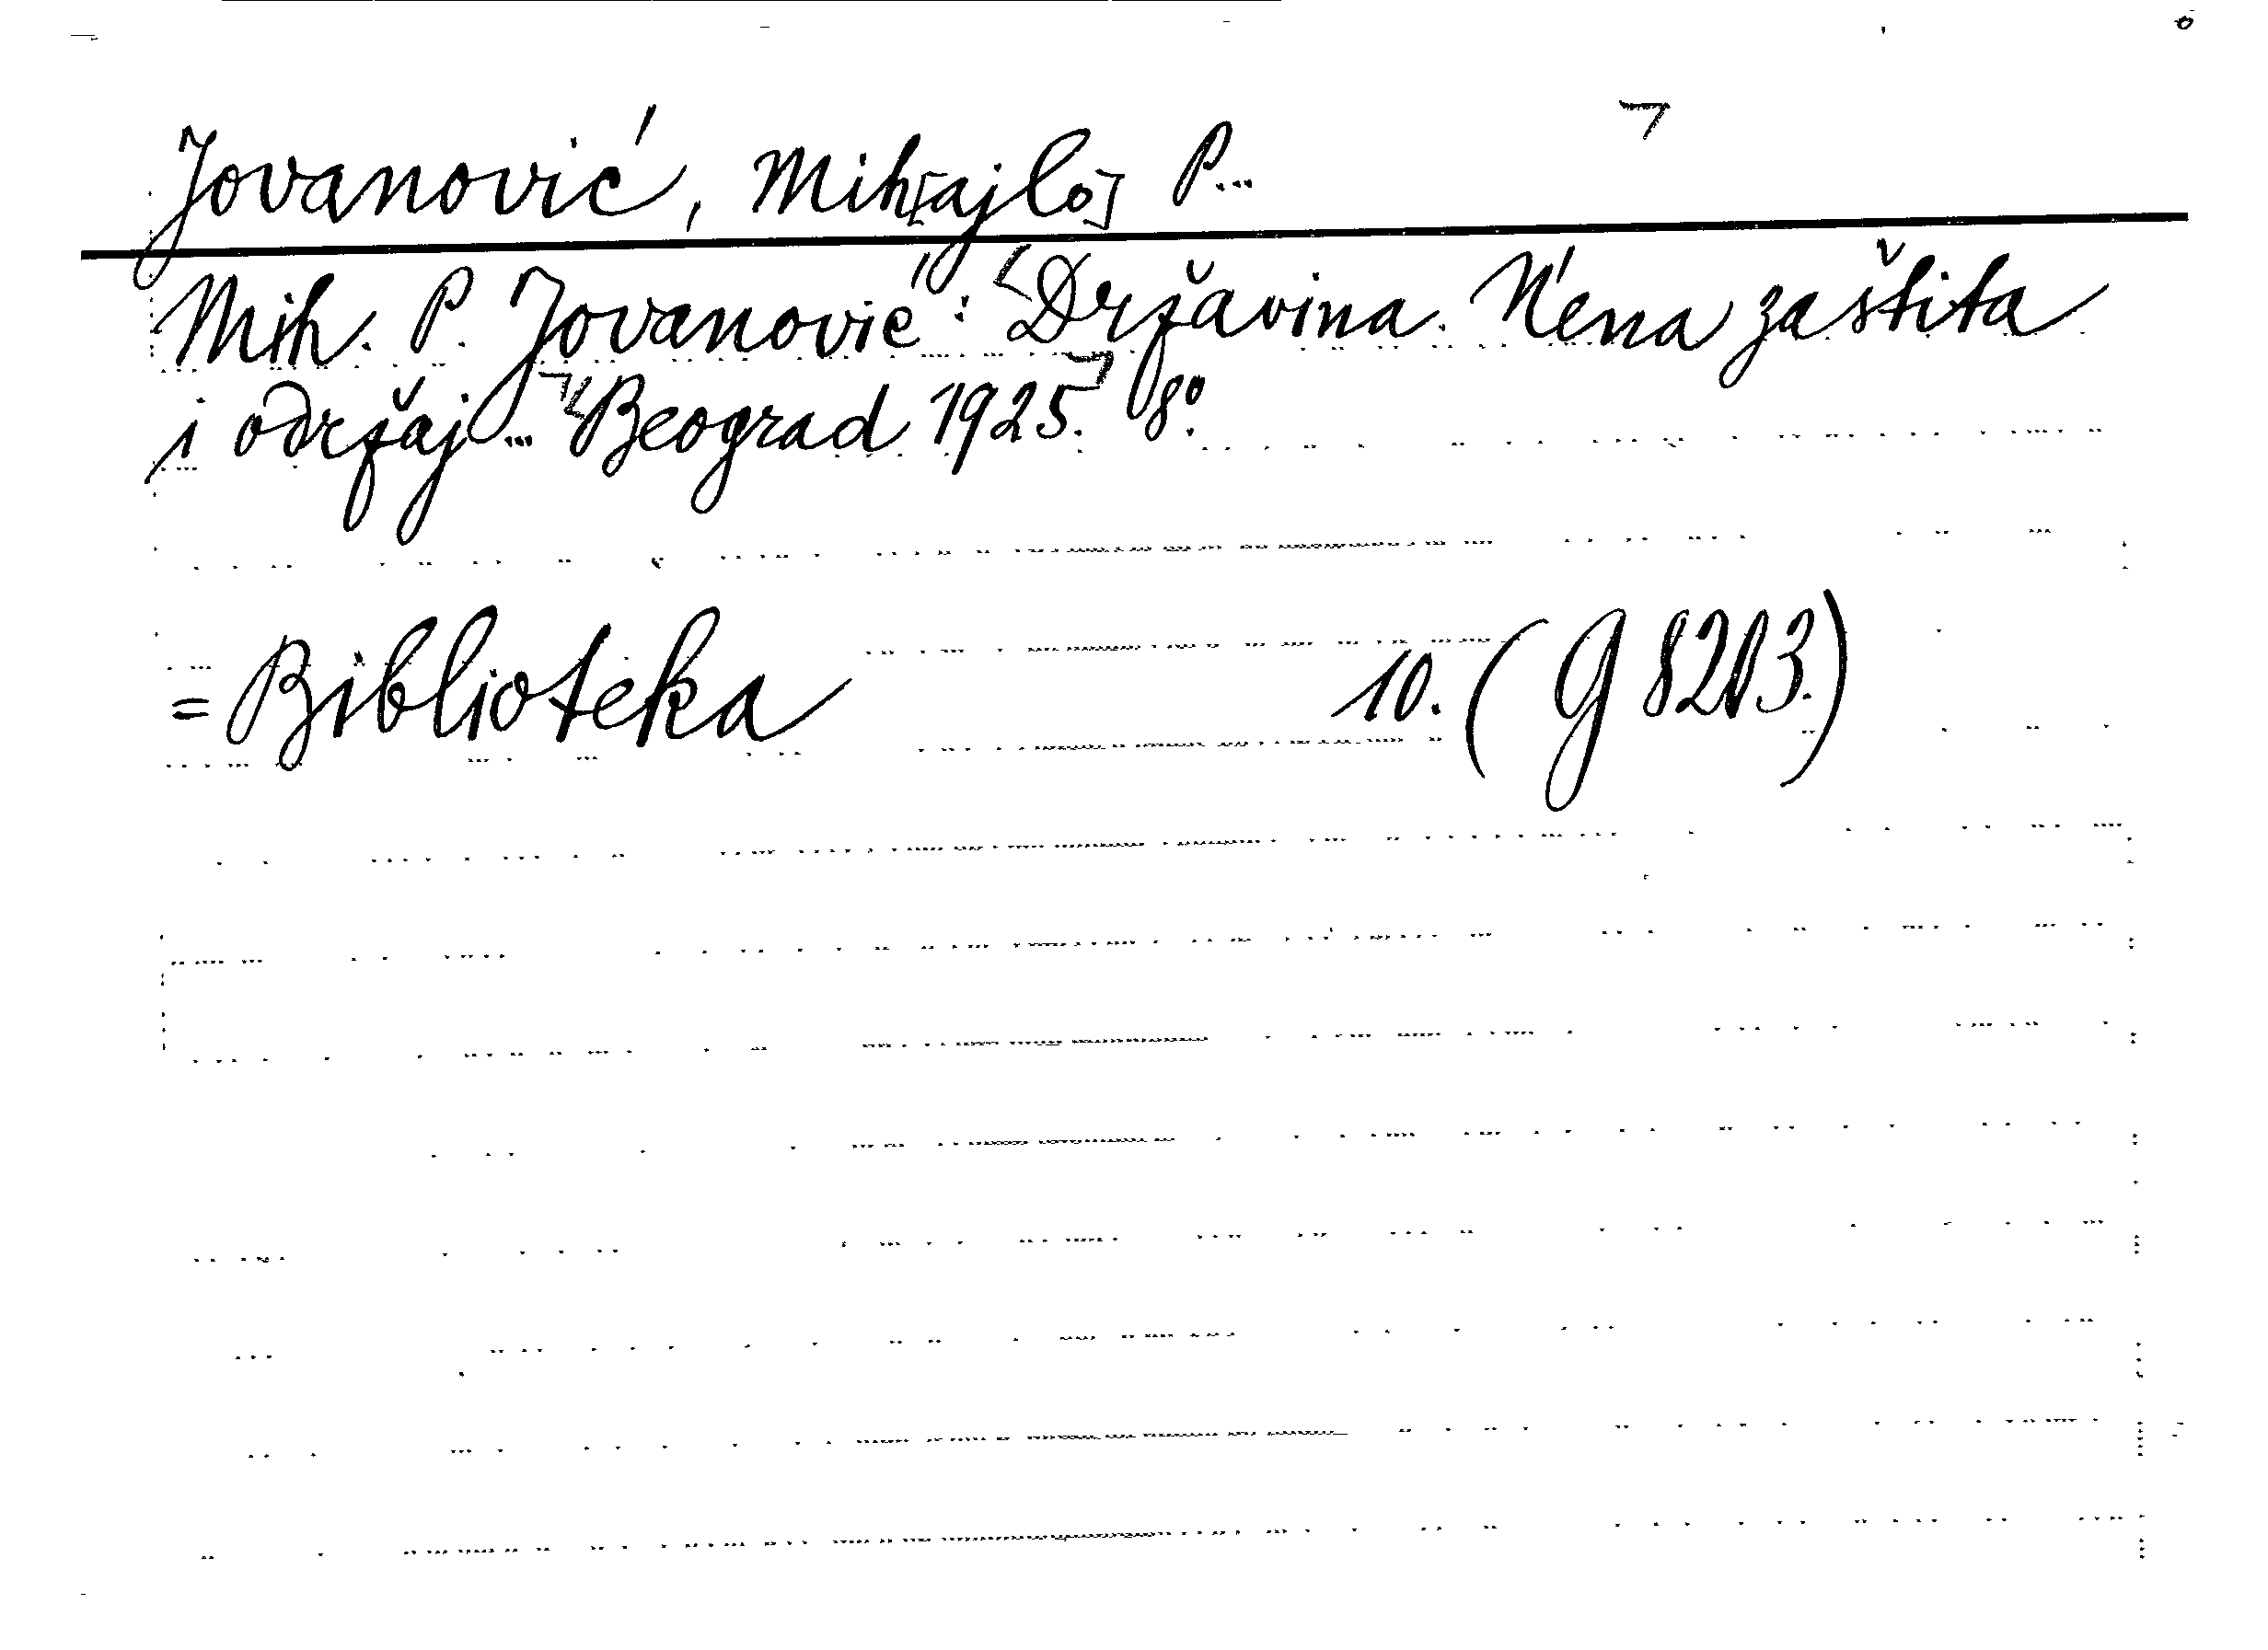 Jovanović, Mih[ajlo] P...
Mih. P. Jovanović: Državina. Ńena zaštita
i održaj ... Beograd 1925. 8°.
= Biblioteka 10. (G 8213.)